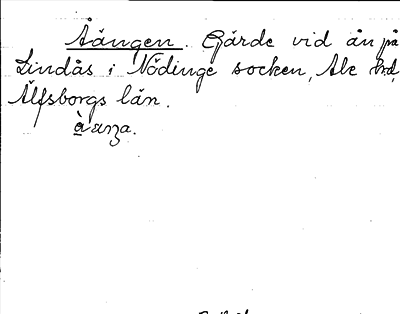 Åängen. Gärde vid ån på
Lindås i Nödinge socken, Ale hrd,
Älfsborgs län.